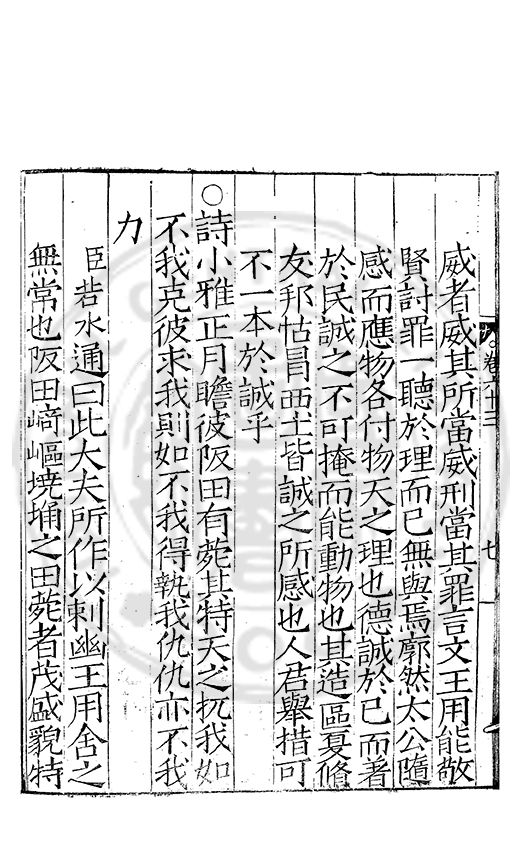 威者威其所當威刑當其罪言文王用能敬
賢討罪一聽於理而已無與焉廓然太公隨
感而應物各付物天之理也德誠於已而著
於民誠之不可掩而能動物也其造區夏脩
友邦怙冒西土皆誠之所感也人君舉措可
不一本於誠乎
○詩小雅正月瞻彼阪田有菀其特天之扤我如
不我克彼求我則如不我得執我仇仇亦不我
力
臣若水通曰此大夫所作以刺幽王用舍之
無常也阪田﨑嶇墝埆之田菀者茂盛貌特
卷六十三
七